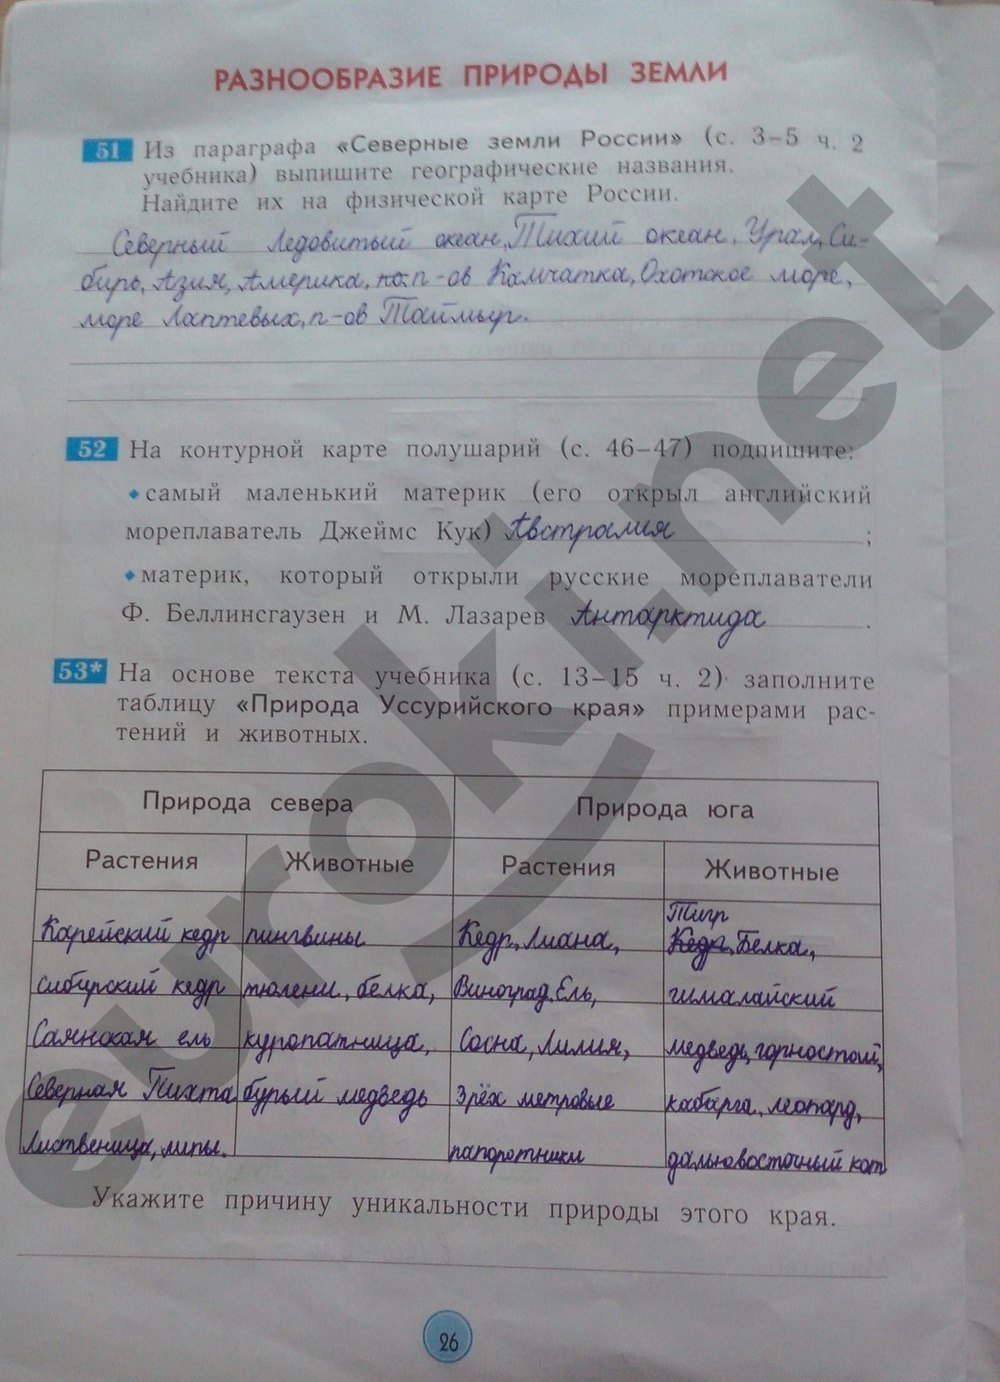 РАЗНООБРАЗИЕ ПРИРОДЫ ЗЕМЛИ
51 Из параграфа «Северные земли России» (с. 3–5 ч. 2
учебника) выпишите географические названия.
Найдите их на физической карте России.
Северный Ледовитый океан, Тихий океан, Урал, Си-
бирь, Азия, Америка, п-ов Камчатка, Охотское море,
море Лаптевых, п-ов Таймыр.
52 На контурной карте полушарий (с. 46–47) подпишите:
• самый маленький материк (его открыл английский
мореплаватель Джеймс Кук) Австралия ;
• материк, который открыли русские мореплаватели
Ф. Беллинсгаузен и М. Лазарев Антарктида .
53* На основе текста учебника (с. 13–15 ч. 2) заполните
таблицу «Природа Уссурийского края» примерами рас-
тений и животных.
Природа севера Природа юга
Растения Животные Растения Животные
Тигр
Карейский кедр пингвины Кедр, Лиана, Кедр, Белка,
сибирский кедр тюлени, белка, Виноград, Ель, гималайский
Саянская ель куропатница, Сосна, Лилия, медведь, горностай,
Северная Пихта бурый медведь Зрёх метровые кабарга, леопард,
Лиственица, липы. папоротники дальновосточный кот
Укажите причину уникальности природы этого края.
26
eurokinet